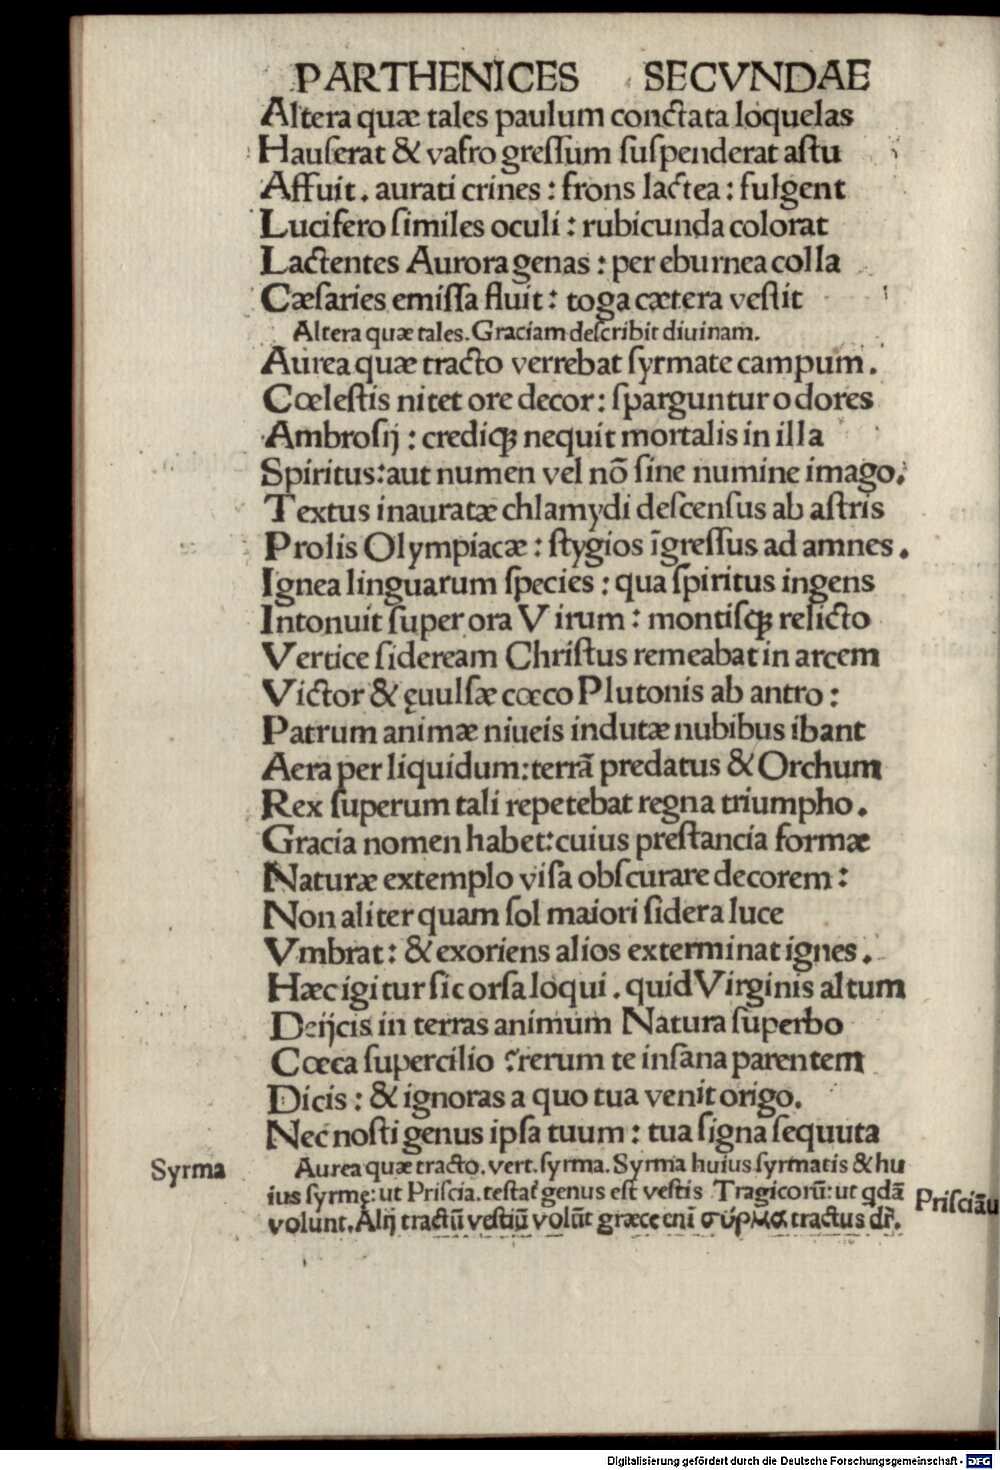 PARTHENICES SECVNDAE
Altera quæ tales paulum conctata loquelas
Hauserat & vafro gressum suspenderat astu
Affuit. aurati crines: frons lactea: fulgent
Lucifero similes oculi: rubicunda colorat
Lactentes Aurora genas: per eburnea colla
Cæsaries emissa fluit: toga cætera vestit
Altera quæ tales. Graciam describit diuinam.
Aurea quæ tracto verrebat syrmate campum.
Cœlestis nitet ore decor: sparguntur odores
Ambrosij: crediqꝫ nequit mortalis in illa
Spiritus: aut numen vel nõ sine numine imago.
Textus inauratæ chlamydi descensus ab astris
Prolis Olympiacæ: stygios ĩgressus ad amnes.
Ignea linguarum species: qua spiritus ingens
Intonuit super ora Virum: montisqꝫ relicto
Vertice sideream Christus remeabat in arcem
Victor & ęuulsæ cœco Plutonis ab antro:
Patrum animæ niueis indutæ nubibus ibant
Aera per liquidum: terrã predatus & Orchum
Rex superum tali repetebat regna triumpho.
Gracia nomen habet: cuius prestancia formæ
Naturæ extemplo visa obscurare decorem:
Non aliter quam sol maiori sidera luce
Vmbrat: & exoriens alios exterminat ignes.
Hæc igitur sic orsa loqui. quid Virginis altum
Deijcis in terras animum Natura superbo
Cœca supercilio? rerum te insana parentem
Dicis: & ignoras a quo tua venit origo.
Nec nosti genus ipsa tuum: tua signa sequuta
Syrma
Aurea quæ tracto. vert. syrma. Syrma huius syrmatis & hu
ius syrmę: ut Priscia. testat᷑ genus est vestis Tragicorũ: ut qdã
Prisciãu
volunt. Alij tractũ vestiũ volũt græce enĩ σύρμα tractus dr̃.
Digitalisierung gefördert durch die Deutsche Forschungsgemeinschaft - DFG